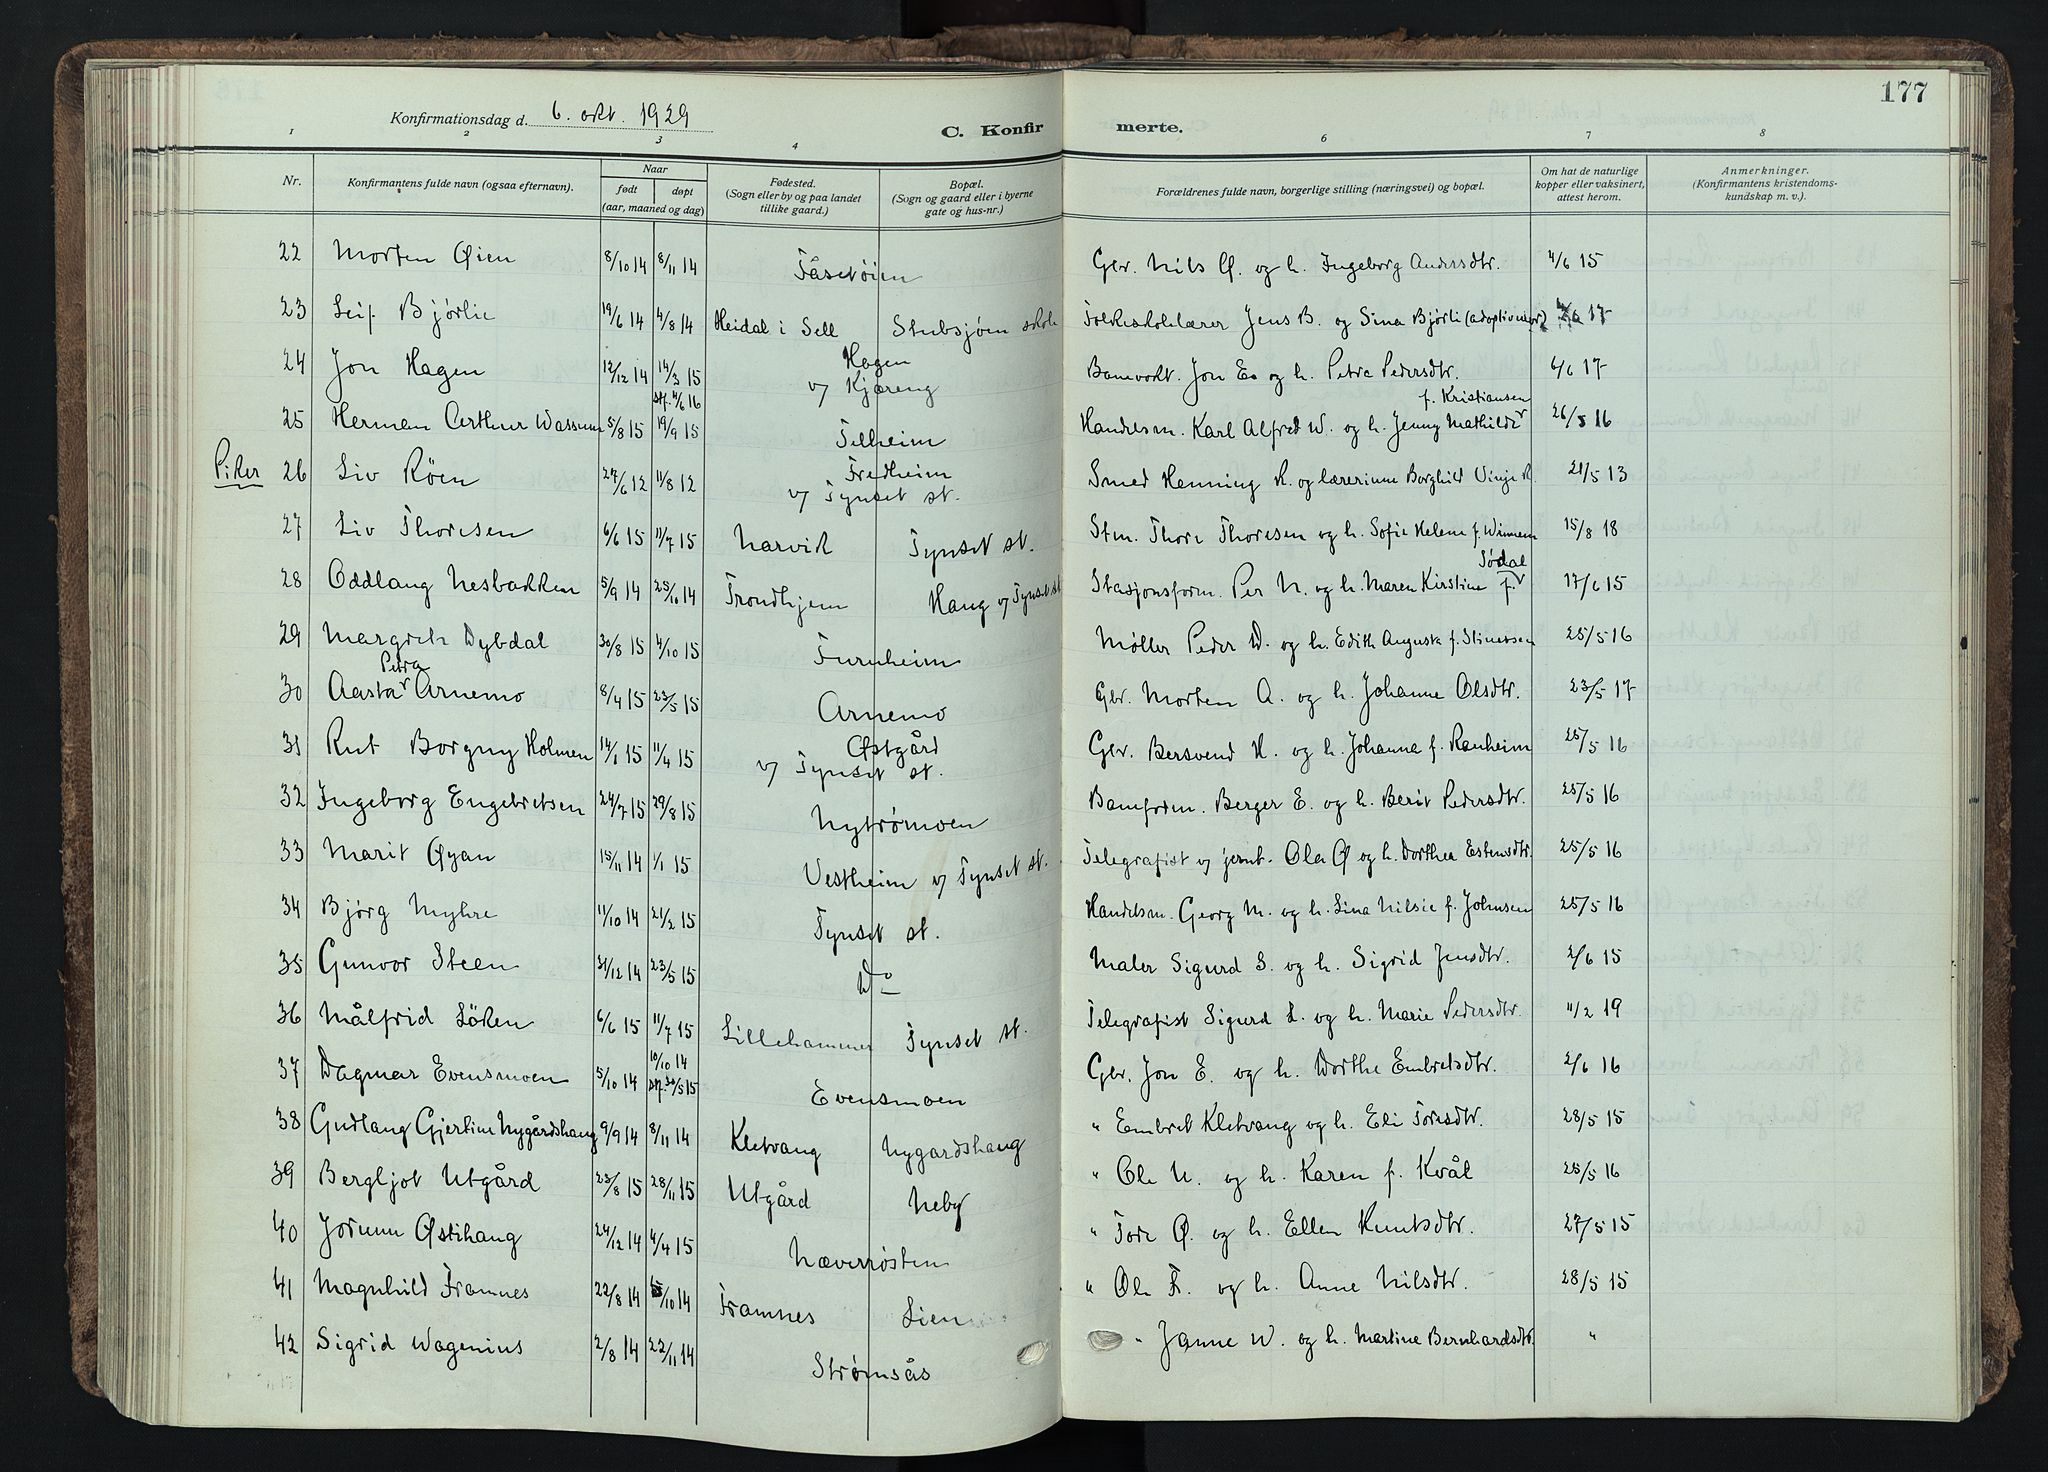 177
Konfirmationsdag d. 6. okt. 1929
C. Konfirmerte.
1 2 3 4 6 7 8
Nr. Konfirmantens fulde navn (ogsaa efternavn). Naar født døpt (aar, maaned og dag) Fødested. (Sogn eller by og paa landet tillike gaard.) Bopæl. (Sogn og gaard eller i byerne gate og hus-nr.) Forældrenes fulde navn, borgerlige stilling (næringsvei) og bopæl. Om hat de naturlige kopper eller vaksinert, attest herom. Anmerkninger. (Konfirmantens kristendoms-kundskap m. v.).
22 Morten Øien 8/10 14 8/11 14 Fåsetøien Gbr. Nils Ø. og h. Ingeborg Andersdtr. 4/6 15
23 Leif Bjørlie 19/6 14 4/8 14 Heidal i Sell Stubsjøen skole Folkeskolelærer Jens B. og Sina Bjørli (adoptivmor) 17
24 Jon Hagen 12/12 14 14/3 15 Hagen v/ Kjæreng Banevokt. Jon E. og h. Petra Pedersdtr. 6/6 17
25 Herman Arthur Wassum 5/8 15 stf. 4/6 16 19/9 15 Telheim Handelsm. Karl Alfred W. og h. Jenny Mathilde f. Kristiansen 26/5 16
Piker 26 Liv Røen 27/6 12 11/8 12 Fredheim v/ Tynset st. Smed Henning R. og lærerinne Borghild Vinje R. 21/5 13
27 Liv Thoresen 6/6 15 11/7 15 Narvik Tynset st. Stm. Thore Thoresen og h. Sofie Helene f. Winnem 15/8 18
28 Oddlaug Nesbakken 5/9 14 25/10 14 Trondhjem Haug v/ Tynset st Stasjonsform. Per N. og h. Maren Kirstine f. Sødal 17/6 15
29 Margrete Dybdal 30/8 15 4/10 15 Furuheim Møller Peder D. og h. Edith Augusta f. Stinessen 25/5 16
30 Aasta Petra Arnemo 8/4 15 23/5 15 Arnemo Gbr. Morten A. og h. Johanne Olsdtr. 23/5 17
31 Rut Borgny Holmen 14/1 15 11/4 15 Østgård v/ Tynset st. Gbr. Bersvend H. og h. Johanna f. Ranheim 25/5 16
32 Ingeborg Engebretsen 24/7 15 29/8 15 Nytrømoen Baneform. Berger E. og h. Berit Pedersdtr. 25/5 16
33 Marit Øyan 15/11 14 1/1 15 Vestheim v/ Tynset st. Telegrafist v/ jernb. Ola Ø og h. Dorthea Estensdtr. 25/5 16
34 Bjørg Myhre 11/10 14 21/2 15 Tynset st. Handelsm. Georg M. og h. Lina Nilsie f. Johnsen 25/5 16
35 Gunvor Steen 31/12 14 23/5 15 Do Maler Sigurd S. og h. Sigrid Jensdtr. 2/6 15
36 Målfrid Løken 6/6 15 11/7 15 Lillehammer Tynset st. Telegrafist Sigurd L. og h. Marie Pedersdtr. 11/2 19
37 Dagmar Evensmoen 5/10 14 10/10 14 stf. 30/5 15 Evensmoen Gbr. Jon E. og h. Dorthe Embretsdtr. 2/6 16
38 Gudlaug Gjertine Nygårdshaug 9/9 14 8/11 14 Kletvang Nygardshaug " Embret Kletvang og h. Eli Toresdtr. 28/5 15
39 Bergljot Utgård 23/8 15 28/11 15 Utgård Neby " Ole U. og h. Karen f. Kvål 25/5 16
40 Jorunn Østihaug 24/12 14 4/4 15 Næverrøsten " Tore Ø. og h. Ellen Knutsdtr. 27/5 15
41 Magnhild Framnes 22/8 14 /10 14 Framnes Lien " Ole F. og h. Anne Nilsdtr. 28/5 15
42 Sigrid Wagenius 2/8 14 22/11 14 Strømsås " Janne W. og h. Martine Bernhardsdtr. "